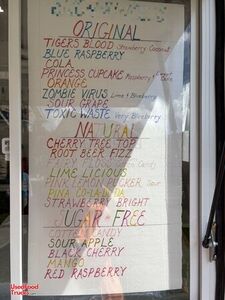 ORIGINAL
TIGERS BLOOD Strawberry Coconut
BLUE RASPBERRY
COLA
PRINCESS CUPCAKE Raspberry &
ORANGE
ZOMBIE VIRUS Lime & Blueberry
SOUR GRAPE
TOXIC WASTE Very Blueberry
NATURAL
CHERRY TREE TOP
ROOT BEER FIZZ
Candy
LIME LICIOUS
PINK LEMON PUCKER Sour
PINA CO-LA-DA
STRAWBERRY BRIGHT
SUGAR FREE
COTTON CANDY
SOUR APPLE
BLACK CHERRY
MANGO
RED RASPBERRY
UsedFood
Trucks